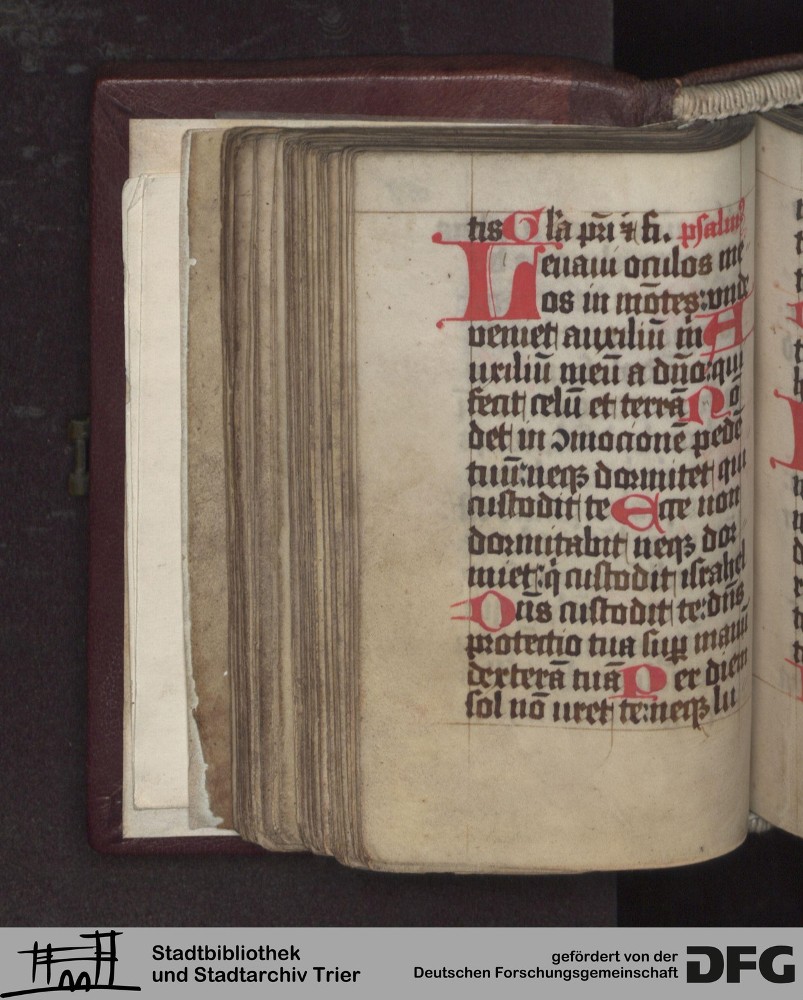 tis Gl'a pr̄i ⁊ fi. psalmꝰ
Leuaui oculos me
os in mōtes: vnde
veniet auxiliū m̄ A
uxiliū meū a dn̄o: qui
fecit celū et terrā Nō
det in ↄmocionē pedē
tuū: neqꝫ dormitet qui
custodit te Ecce non
dormitabit neqꝫ dor
miet: q̇ custodit israhel
Dn̄s custodit te: dn̄s
protectio tua suꝑ manū
dexterā tuā Per diem
sol nō uret te: neqꝫ lu
Stadtbibliothek
und Stadtarchiv Trier
gefördert von der
Deutschen Forschungsgemeinschaft
DFG